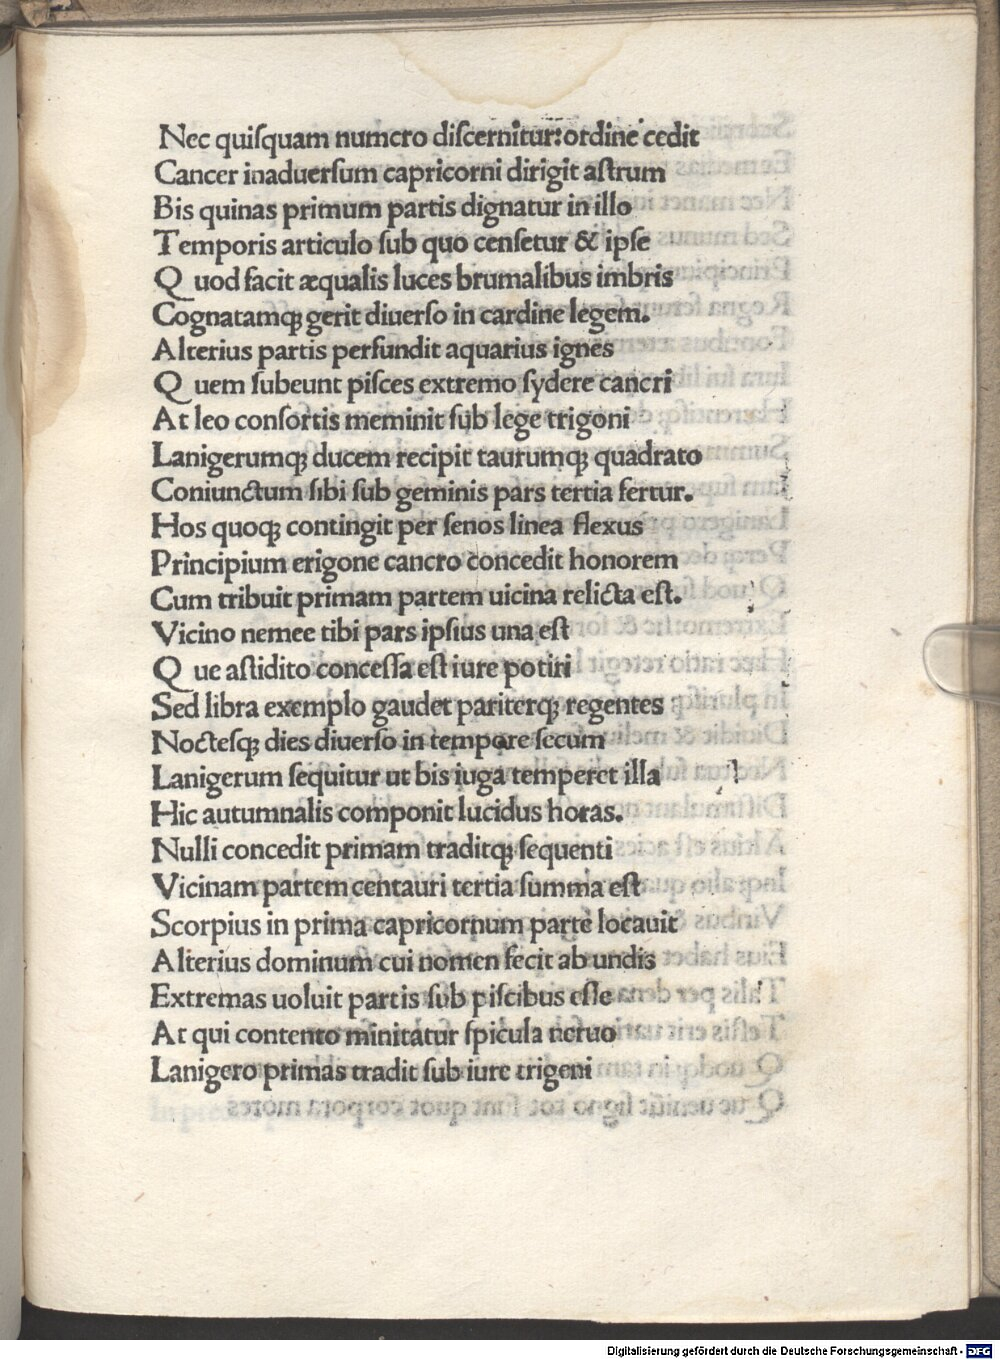 Nec quiſquam numero diſcernitur: ordine cedit
Cancer inaduerſum capricorni dirigit aſtrum
Bis quinas primum partis dignatur in illo
Temporis articulo ſub quo cenſetur & ipſe
Q uod facit æqualis luces brumalibus imbris
Cognatamqꝫ gerit diuerſo in cardine legem.
Alterius partis perfundit aquarius ignes
Q uem ſubeunt piſces extremo ſydere cancri
At leo conſortis meminit ſub lege trigoni
Lanigerumqꝫ ducem recipit taurumqꝫ quadrato
Coniunctum ſibi ſub geminis pars tertia fertur.
Hos quoqꝫ contingit per ſenos linea flexus
Principium erigone cancro concedit honorem
Cum tribuit primam partem uicina relicta eſt.
Vicino nemee tibi pars ipſius una eſt
Q ue aſtidito conceſſa eſt iure potiri
Sed libra exemplo gaudet pariterqꝫ regentes
Nocteſqꝫ dies diuerſo in tempore ſecum
Lanigerum ſequitur ut bis iuga temperet illa
Hic autumnalis componit lucidus horas.
Nulli concedit primam traditqꝫ ſequenti
Vicinam partem centauri tertia ſumma eſt
Scorpius in prima capricornum parte locauit
Alterius dominum cui nomen fecit ab undis
Extremas uoluit partis ſub piſcibus eſſe
At qui contento minitatur ſpicula neruo
Lanigero primas tradit ſub iure trigeni
Digitalisierung gefördert durch die Deutsche Forschungsgemeinschaft - DFG